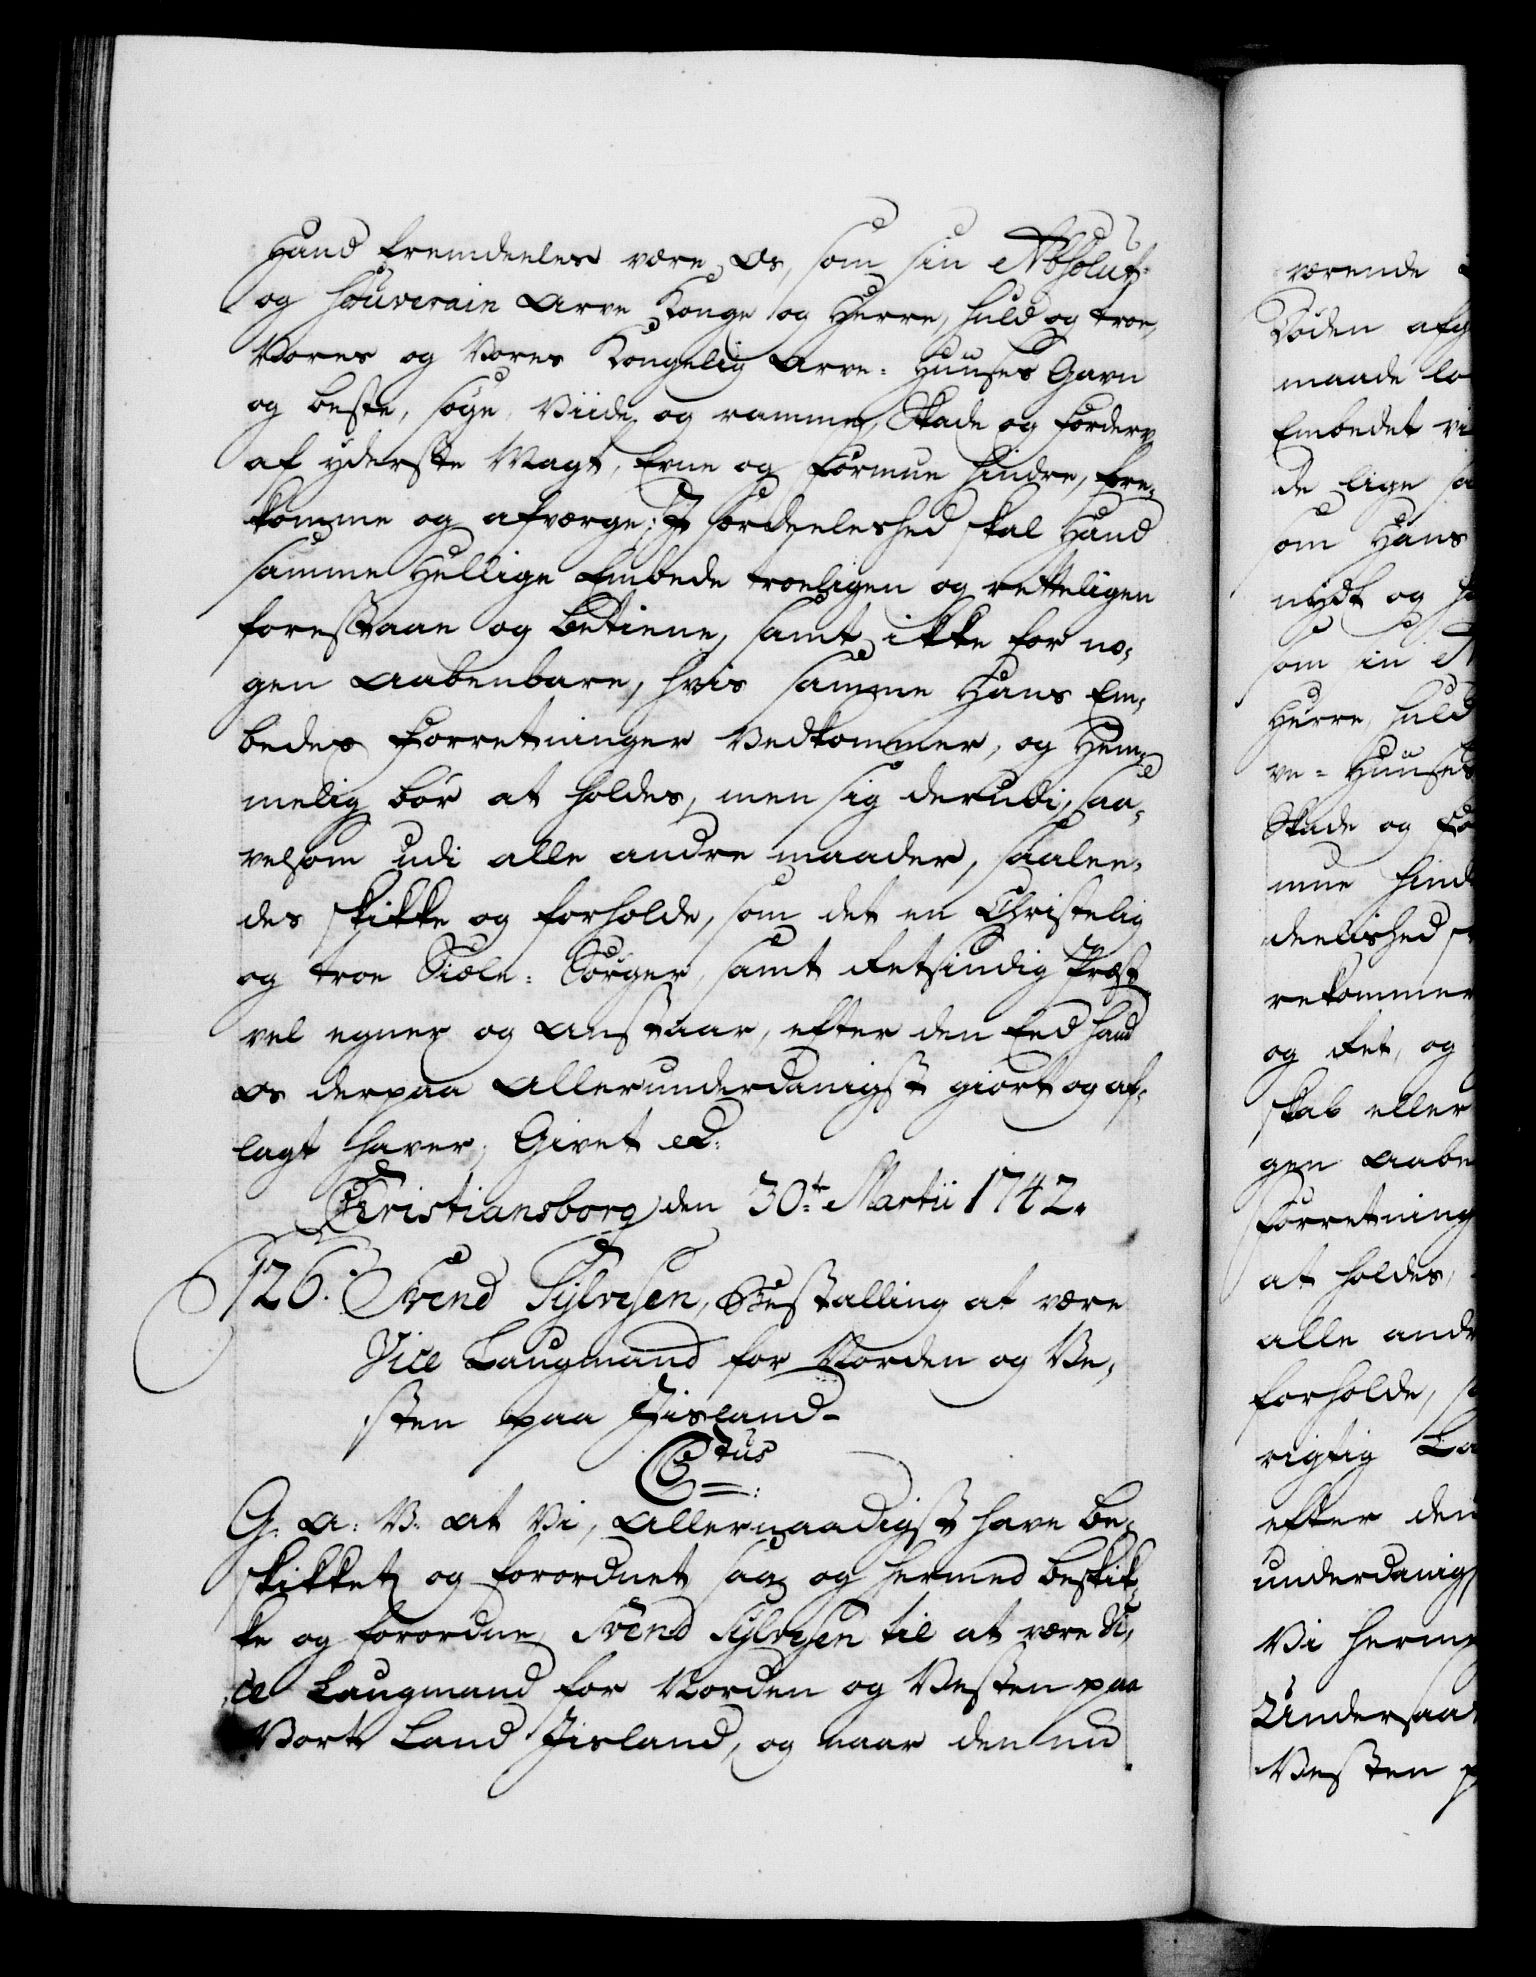 Hand fremdeeles være Os, som sin Absolut-
og Souverain Arve Konge og Herre, huld og troe,
Vores og Vores Kongelig Arve-Huuses Gavn
og beste, søge, Viide og ramme, Skade og Forderv
af yderste Magt, Evne og Formue hindre, fore-
komme og afværge; I særdeeleshed skal Hand
samme Hellige Embede troeligen og retteligen
forestaae og betiene, samt ikke for no-
gen Aabenbare, hvis samme Hans Em-
bedes Forretninger Vedkommer, og Hem-
melig bør at holdes, men sig derudi, saa-
velsom udi alle andre maader, saalee-
des skikke og forholde, som det en Christelig
og troe Siæle-Sørger, samt Retsindig Præst
vel egner og Anstaar, efter den Eed Hand
Os derpaa Allerunderdanigst giort og af-
lagt haver; Givet etc:
Christiansborg den 30te Martii 1742.
126. Svend Sylvesen, Bestalling at være
Vice Laugmand for Norden og Ve-
sten paa Jisland.
Ctus
G: A: V: At Vi, Allernaadigst have be-
skikket og forordnet saa og hermed beskik-
ke og forordne, Svend Sylvesen til at være Vi-
ce Laugmand for Norden og Vesten paa
Vort Land Jisland, og naar den nu
værende
Døden afg
maade lo
Embedet vi
de lige sa
som Hans
nydt og h
som sin A
Herre, huld
ve-Huuses
Skade og Fo
mue hind
deelished s
rekommer
og Ret, og
skab eller
gen Aabe
Forretning
at holdes,
alle andr
forholde, s
rigtig La
efter den
underdanigs
Vi herme
Undersaat
Vesten p